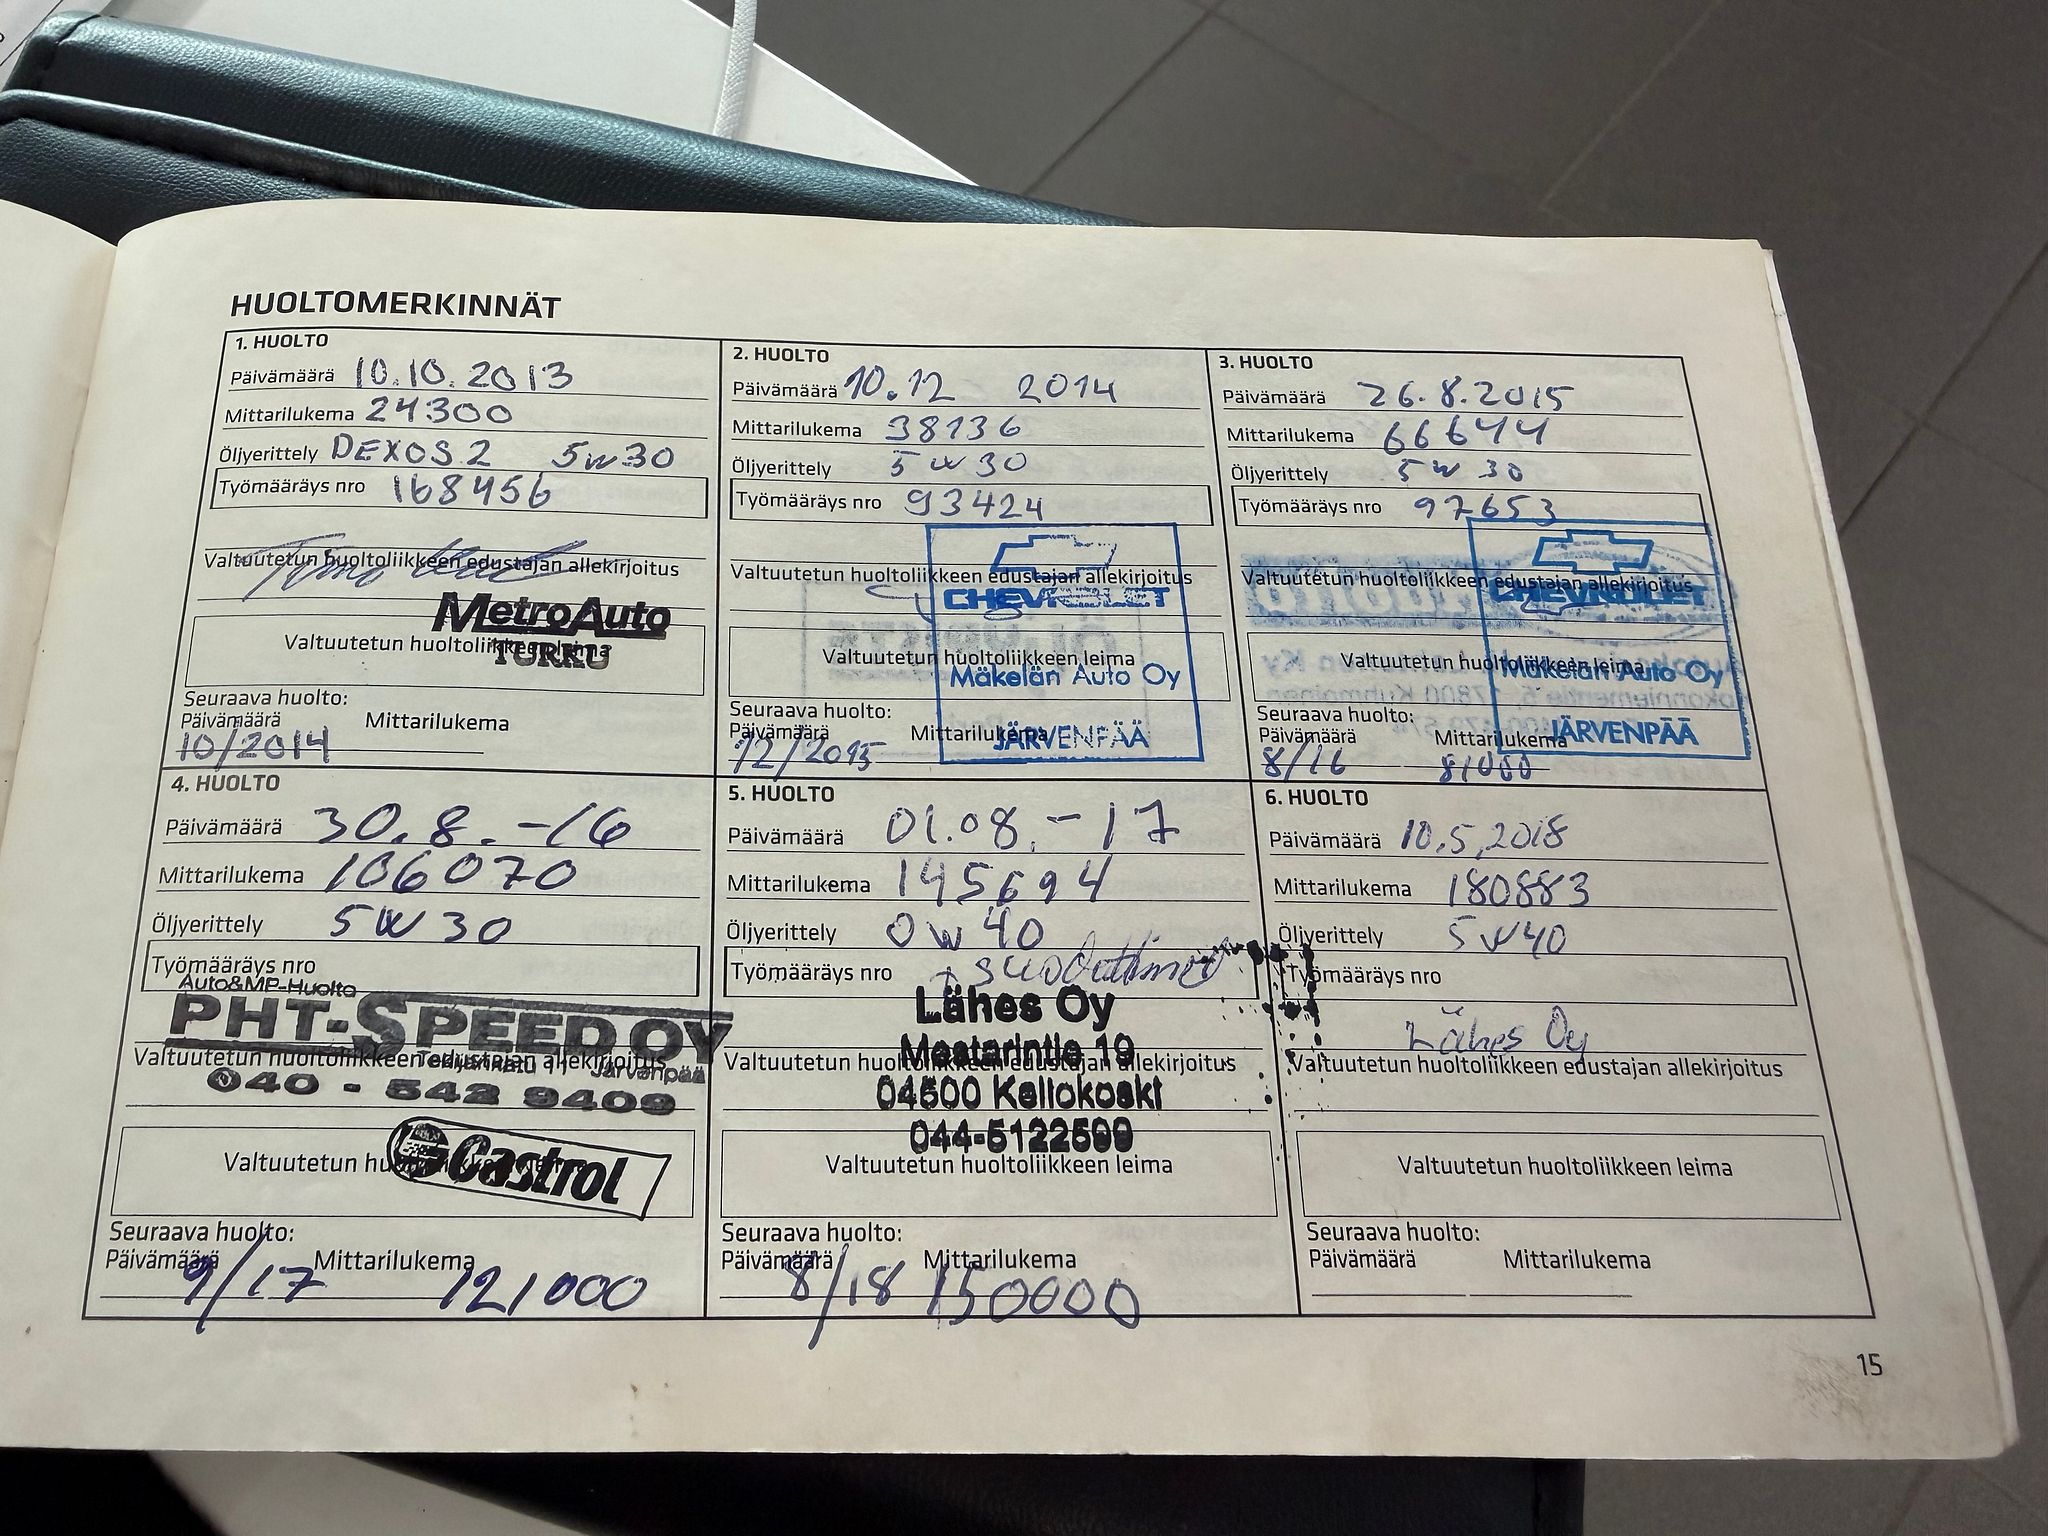 HUOLTOMERKINNÄT
1. HUOLTO
Päivämäärä 10.10.2013
Mittarilukema 24300
Öljyerittely DEXOS 2 5w30
Työmääräys nro 168456
Valtuutetun huoltoliikkeen edustajan allekirjoitus
MetroAuto
TURKU
Valtuutetun huoltoliikkeen leima
Seuraava huolto:
Päivämäärä Mittarilukema
10/2014
2. HUOLTO
Päivämäärä 10.12 2014
Mittarilukema 38136
Öljyerittely 5w30
Työmääräys nro 93424
Valtuutetun huoltoliikkeen edustajan allekirjoitus
CHEVROLET
Valtuutetun huoltoliikkeen leima
Mäkelän Auto Oy
Seuraava huolto:
Päivämäärä Mittarilukema
JÄRVENPÄÄ
12/2015
3. HUOLTO
Päivämäärä 26.8.2015
Mittarilukema 66644
Öljyerittely 5w30
Työmääräys nro 97653
Valtuutetun huoltoliikkeen edustajan allekirjoitus
CHEVROLET
Valtuutetun huoltoliikkeen leima
Mäkelän Auto Oy
Seuraava huolto:
Päivämäärä Mittarilukema
JÄRVENPÄÄ
8/16 81000
4. HUOLTO
Päivämäärä 30.8.-16
Mittarilukema 106070
Öljyerittely 5W30
Työmääräys nro
Auto&MP-Huolto
PHT-SPEED OY
Valtuutetun huoltoliikkeen edustajan allekirjoitus
Järvenpää
040 - 542 9409
Castrol
Valtuutetun huoltoliikkeen leima
Seuraava huolto:
Päivämäärä Mittarilukema
9/17 121000
5. HUOLTO
Päivämäärä 01.08.-17
Mittarilukema 145694
Öljyerittely 0w40
Työmääräys nro + suodattimet
Lähes Oy
Mestarintie 19
Valtuutetun huoltoliikkeen edustajan allekirjoitus
04500 Kellokoski
044-5122599
Valtuutetun huoltoliikkeen leima
Seuraava huolto:
Päivämäärä Mittarilukema
8/18 150000
6. HUOLTO
Päivämäärä 10.5.2018
Mittarilukema 180883
Öljyerittely 5w40
Työmääräys nro
Lähes Oy
Valtuutetun huoltoliikkeen edustajan allekirjoitus
Valtuutetun huoltoliikkeen leima
Seuraava huolto:
Päivämäärä Mittarilukema
15